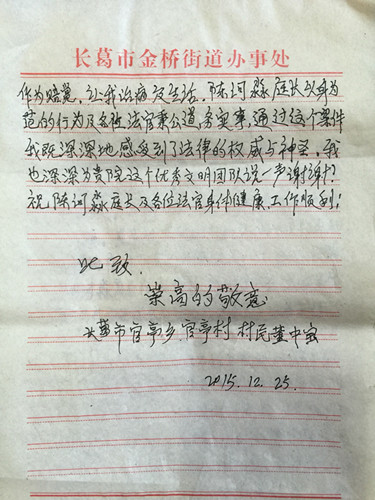 长葛市金桥街道办事处
作为赔偿，让我治病及生活。陈河淼庭长以身为
范的行为及各位法官秉公道，务实事，通过这个案件
我既深深地感受到了法律的权威与神圣，我
也深深为贵院这个优秀文明团队说一声谢谢！
祝陈河淼庭长及各位法官身体健康，工作顺利；
此致
崇高的敬意
长葛市官亭乡官亭村村民董中宝
2015.12.25.